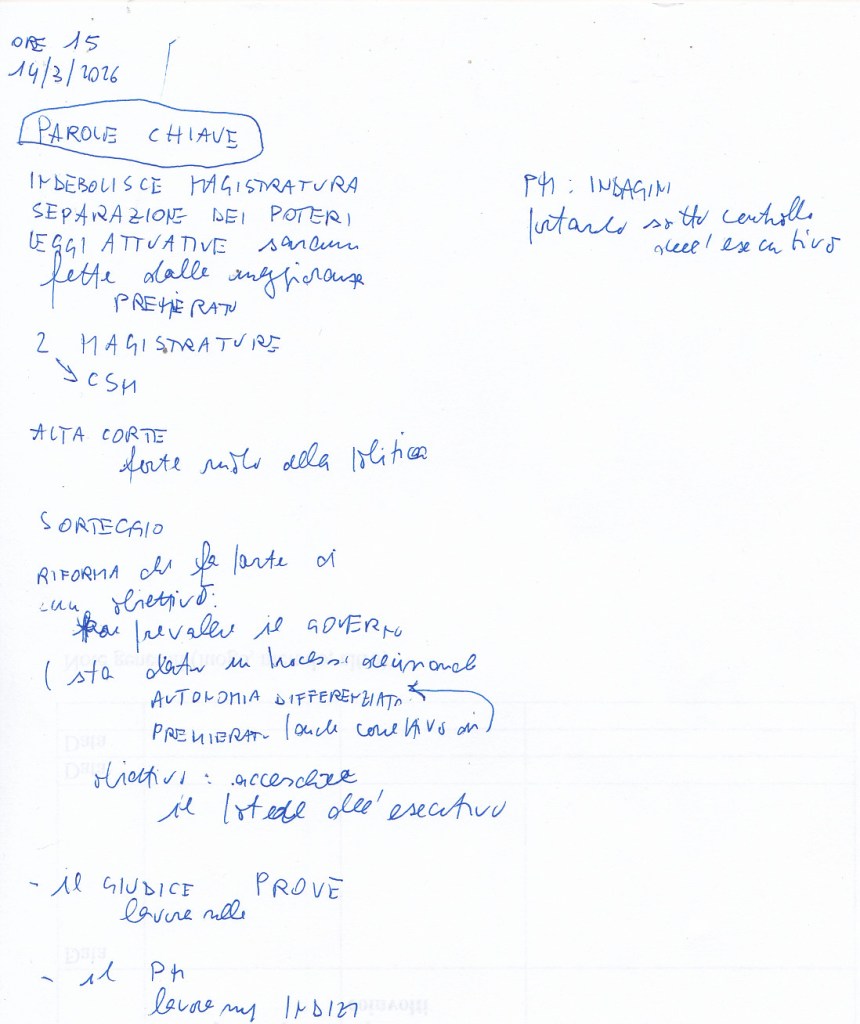 ORE 15
14/3/2026
PAROLE CHIAVE
INDEBOLISCE MAGISTRATURA
SEPARAZIONE DEI POTERI
LEGGI ATTUATIVE saranno
fatte dalla maggioranza
PREMIERATO
2 MAGISTRATURE
CSM
ALTA CORTE
forte ruolo della politica
SORTEGGIO
RIFORMA che fa parte di
un obiettivo:
prevalere il GOVERNO
( sta dentro un processo decisionale
AUTONOMIA DIFFERENZIATA
PREMIERATO (anche correttivo di)
obiettivo : accrescere
il potere dell'esecutivo
- il GIUDICE PROVE
lavora sulle
- il PM
lavora sugli INDIZI
PM : INDAGINI
portarlo sotto controllo
dell'esecutivo